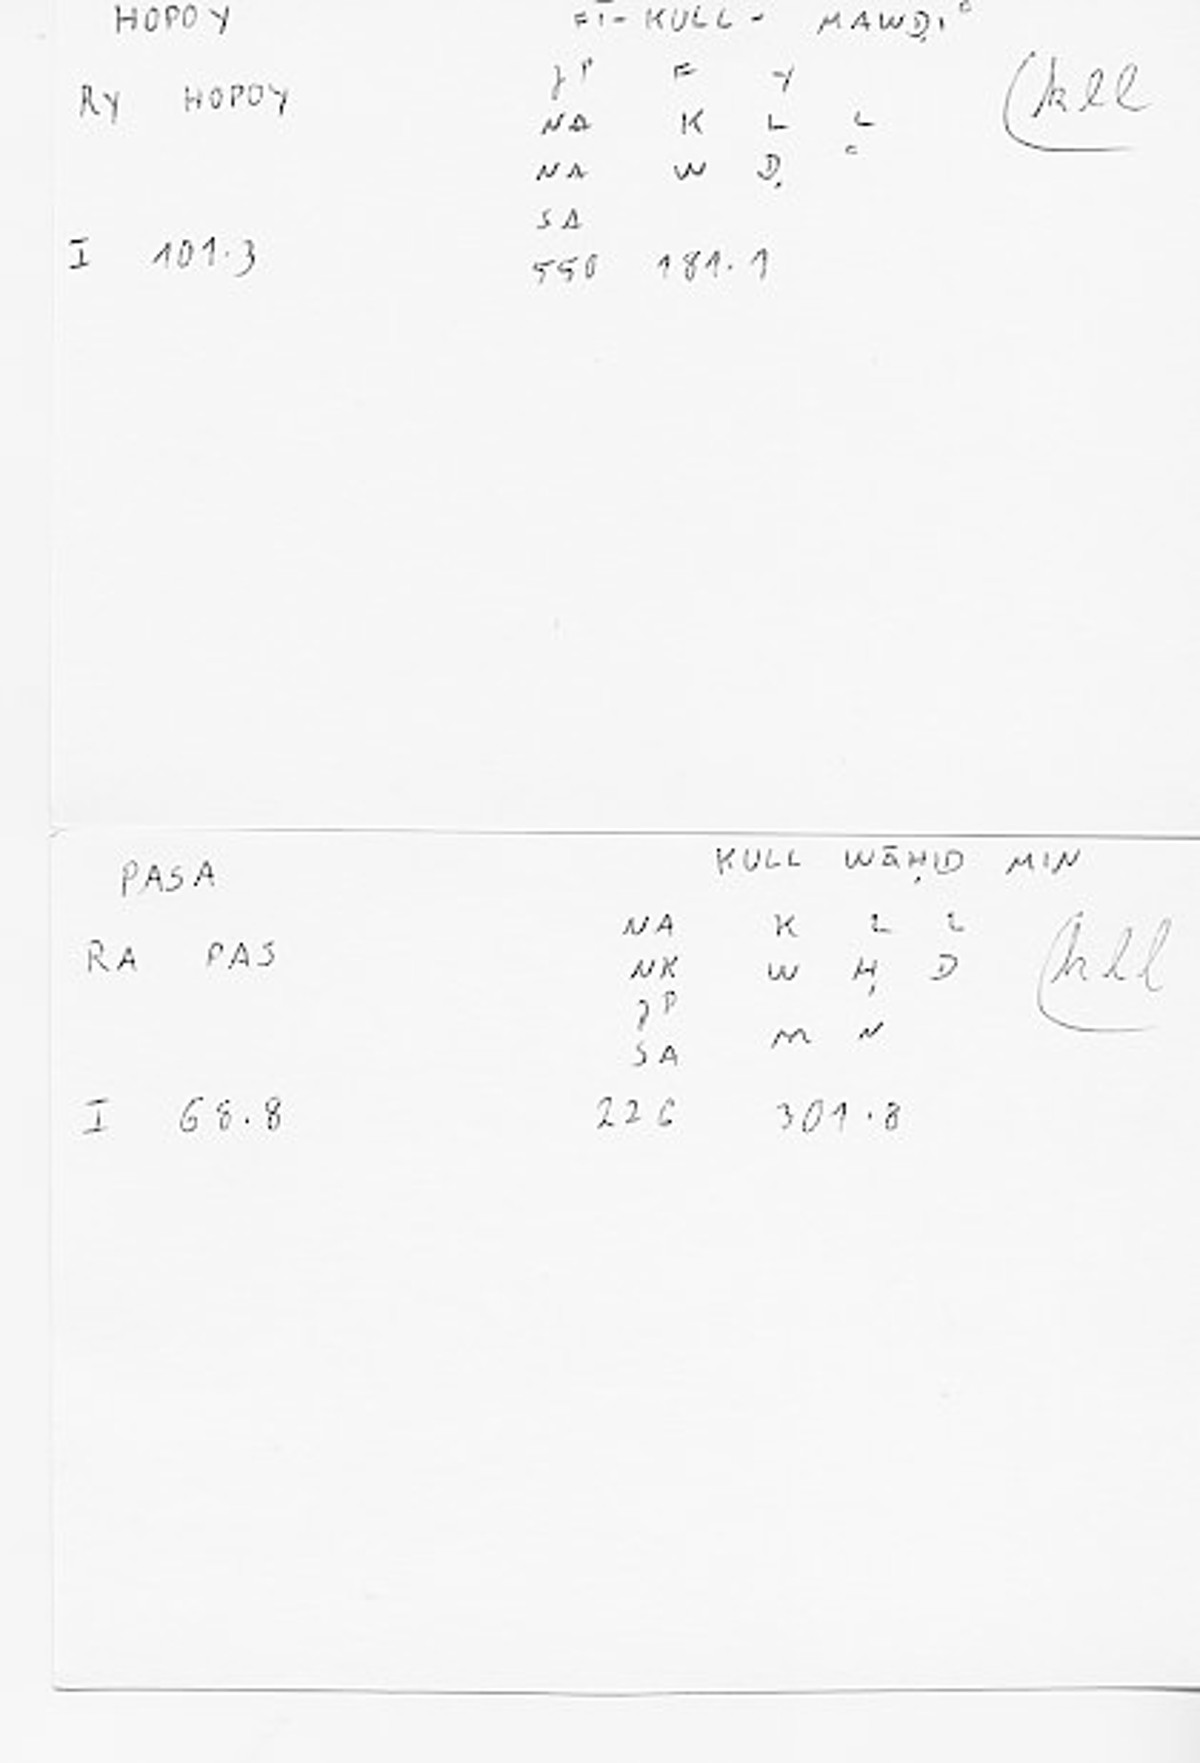 HOPOY FĪ-KULL- MAWḌIʿ
JP F Y
RY HOPOY NA K L L (kll
NA W Ḍ ʿ
SA
I 101.3 550 181.1
PASA KULL WĀḤID MIN
NA K L L (kll
RA PAS NK W Ḥ D
JP M N
SA
I 68.8 226 301.8